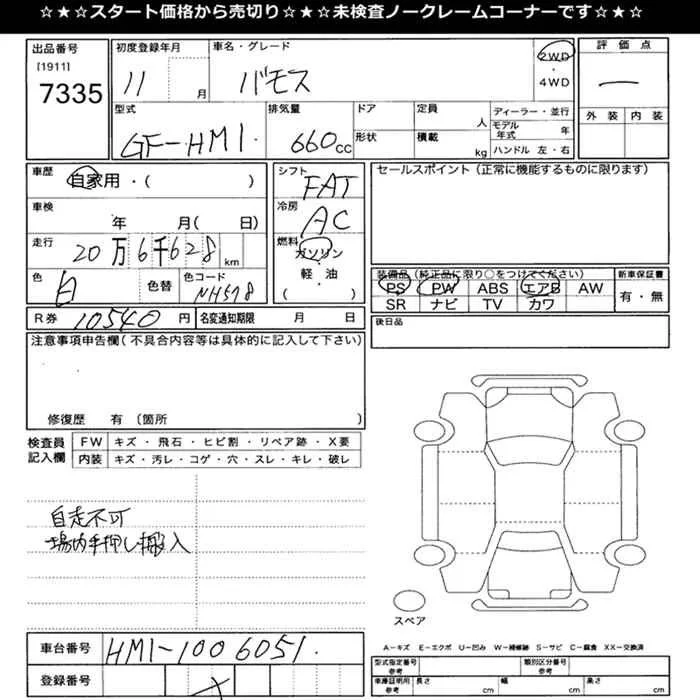 ☆★☆★スタート価格から売切り☆★☆★未検査ノークレームコーナーです☆★☆
出品番号
[1911]
7335
初度登録年月
11 月
車名・グレード
バモス
2WD
・
4WD
評価点
一
外装 内装
型式
GF-HM1
排気量
660cc
ドア
形状
定員
人
積載
kg
ディーラー・並行
モデル年式 年
ハンドル 左・右
車歴
自家用・( )
車検
年 月( 日)
走行
20万6千628 km
色
白
色替
色コード
NH578
シフト
FAT
冷房
AC
燃料
ガソリン
・
軽油
( )
セールスポイント(正常に機能するものに限ります)
装備品(純正品に限り○をつけてください)
PS PW ABS エアB AW
SR ナビ TV カワ
新車保証書
有・無
R券 10540 円
名変通知期限 月 日
後日品
注意事項申告欄(不具合内容等は具体的に記入して下さい)
修復歴 有 (箇所 )
検査員
記入欄
FW キズ・飛石・ヒビ割・リペア跡・X要
内装 キズ・汚レ・コゲ・穴・スレ・キレ・破レ
自走不可
場内手押し搬入
スペア
A−キズ E−エクボ U−凹み W−補修跡 S−サビ C−腐食 XX−交換済
車台番号
HM1-1006051
登録番号
型式指定番号
参考
類別区分番号
参考
車庫証明用
参考
長さ cm 幅 cm 高さ cm